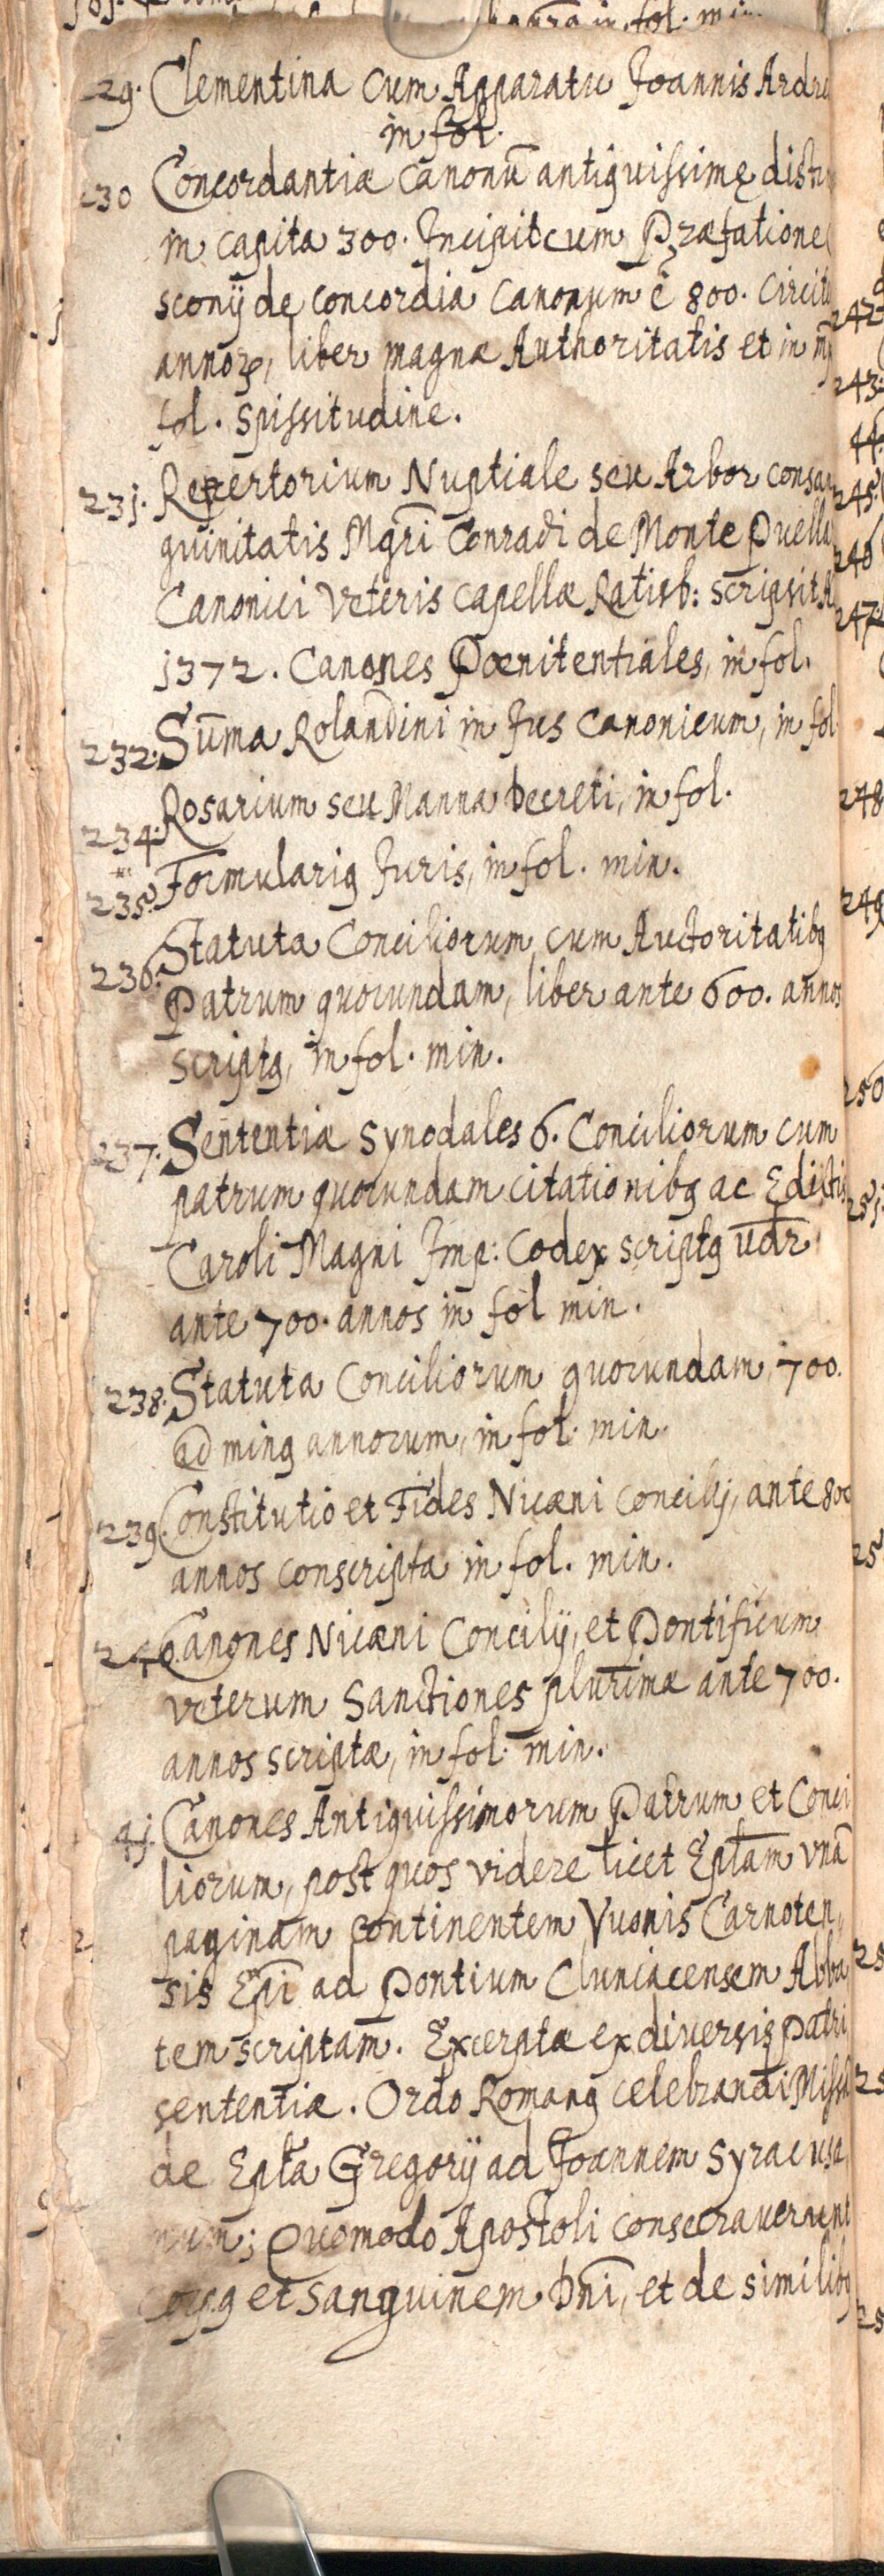 29. Clementina cum Apparatu Joannis Ardre
in fol.
230 Concordantiæ canonū antiquissimę distin
in capita 300. Incipit cum Præfatione
sconij de concordia canonum ē 800. circit
annoꝝ, liber magnæ Authoritatis et in
fol. spissitudine.
23j. Repertorium Nuptiale seu Arbor consan
guinitatis Mgr̄i Conradi de Monte Puella
Canonici Veteris capellæ Ratisb: scripsit A
j372. Canones Pœnitentiales, in fol.
232. Sūma Rolandini in Jus Canonicum, in fol
234. Rosarium seu Manna Decreti, in fol.
235. Formulariꝰ Juris, in fol. min.
236. Statuta Conciliorum cum Auctoritatibꝰ
Patrum quorundam, liber ante 600. annos
scriptꝰ, in fol. min.
237. Sententiæ Synodales 6. Conciliorum cum
patrum quorundam citationibꝰ ac Edictis
Caroli Magni Imp: Codex scriptꝰ vd̄r
ante 700. annos in fol min.
238. Statuta Conciliorum quorundam, 700.
ad minꝰ annorum, in fol. min.
239. Constitutio et Fides Nicæni Concilij, ante 800
annos conscripta in fol. min.
240. Canones Nicæni Concilij, et Pontificum
veterum Sanctiones plurimæ ante 700.
annos scriptæ, in fol. min.
4j. Canones Antiquissimorum Patrum et Conci
liorum, post quos videre licet Ep̄tam vnā
paginam continentem Yuonis Carnoten,
sis Ep̄i ad Pontium Cluniacensem Abba
tem scriptam. Excerptæ ex diversis patrū
sententiæ. Ordo Romanꝰ celebrandi Missā
de Ep̄ta Gregorij ad Joannem Syracusa
num; Quomodo Apostoli consecraverunt
Corpꝰ et Sanguinem Dn̄i, et de similibꝰ